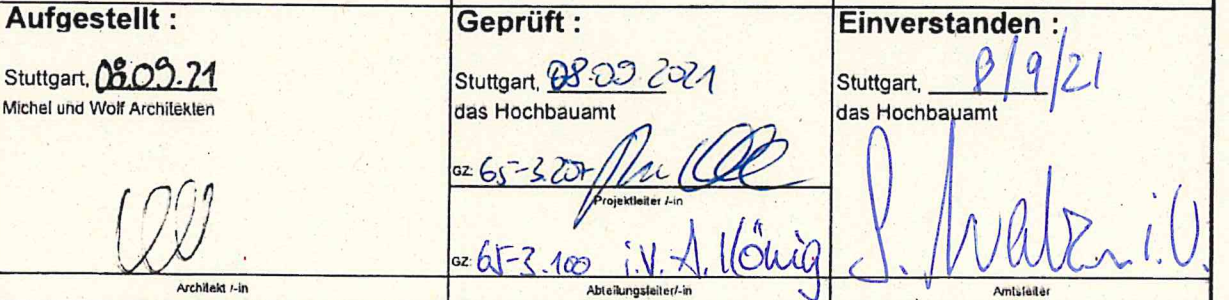 Aufgestellt :
Stuttgart, 08.09.21
Michel und Wolf Architekten
Architekt /-in
Geprüft :
Stuttgart, 08.09.2021
das Hochbauamt
GZ: 65-3.207
Projektleiter /-in
GZ: 65-3.100 i.V. A. König
Abteilungsleiter/-in
Einverstanden :
Stuttgart, 8/9/21
das Hochbauamt
i.V.
Amtsleiter